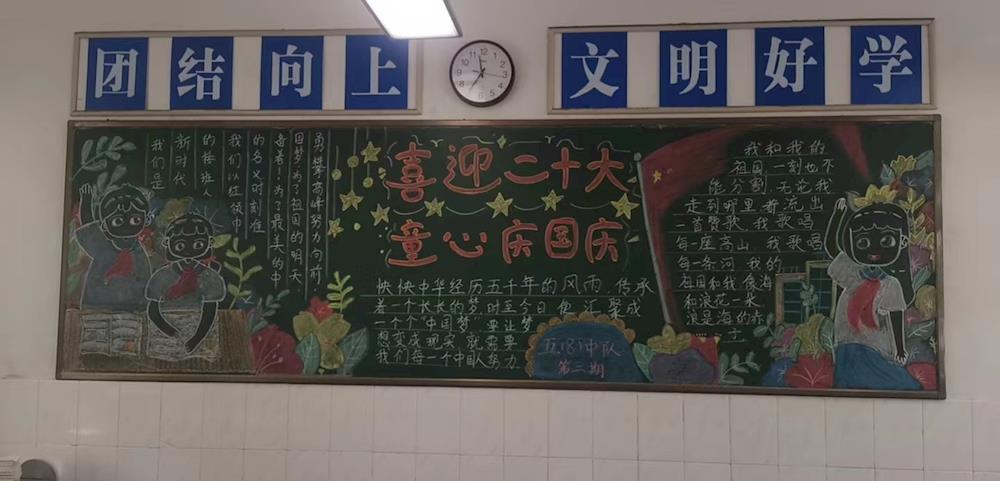 团结向上
文明好学
我们是
新时代
的接班人
我们以红领巾
的名义时刻准
备着！为了最美的中
国梦为了祖国的明天
勇攀高峰努力向前
喜迎二十大
童心庆国庆
怏怏中华经历五千年的风雨,传承
着一个长长的梦,时至今日 便汇聚成
一个个"中国梦" 要让梦
想变成现实 就需要
我们每一个中国人努力
五(8)中队
第二期
我和我的
祖国一刻也不
能分割 无论我
走到哪里都流出
一首赞歌 我歌唱
每一座高山 我歌唱
每一条河 我的
祖国和我 像海
和浪花一朵
浪是海的赤
子